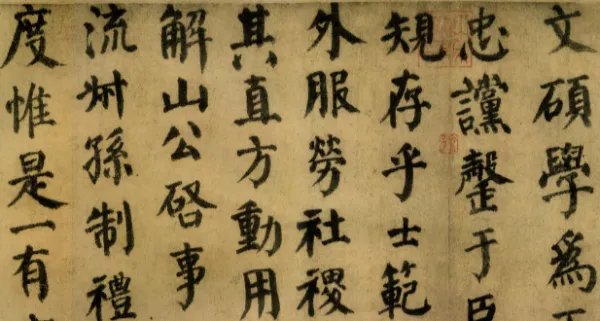 文碩學爲
忠讜罄于臣
規存乎士範
外服勞社稷
其直方動用
解山公啓事
流叔孫制禮
度惟是一有